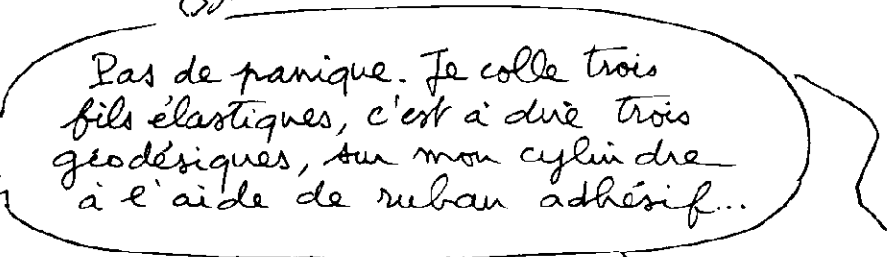 Pas de panique. Je colle trois
fils élastiques, c'est à dire trois
géodésiques, sur mon cylindre
à l'aide de ruban adhésif...